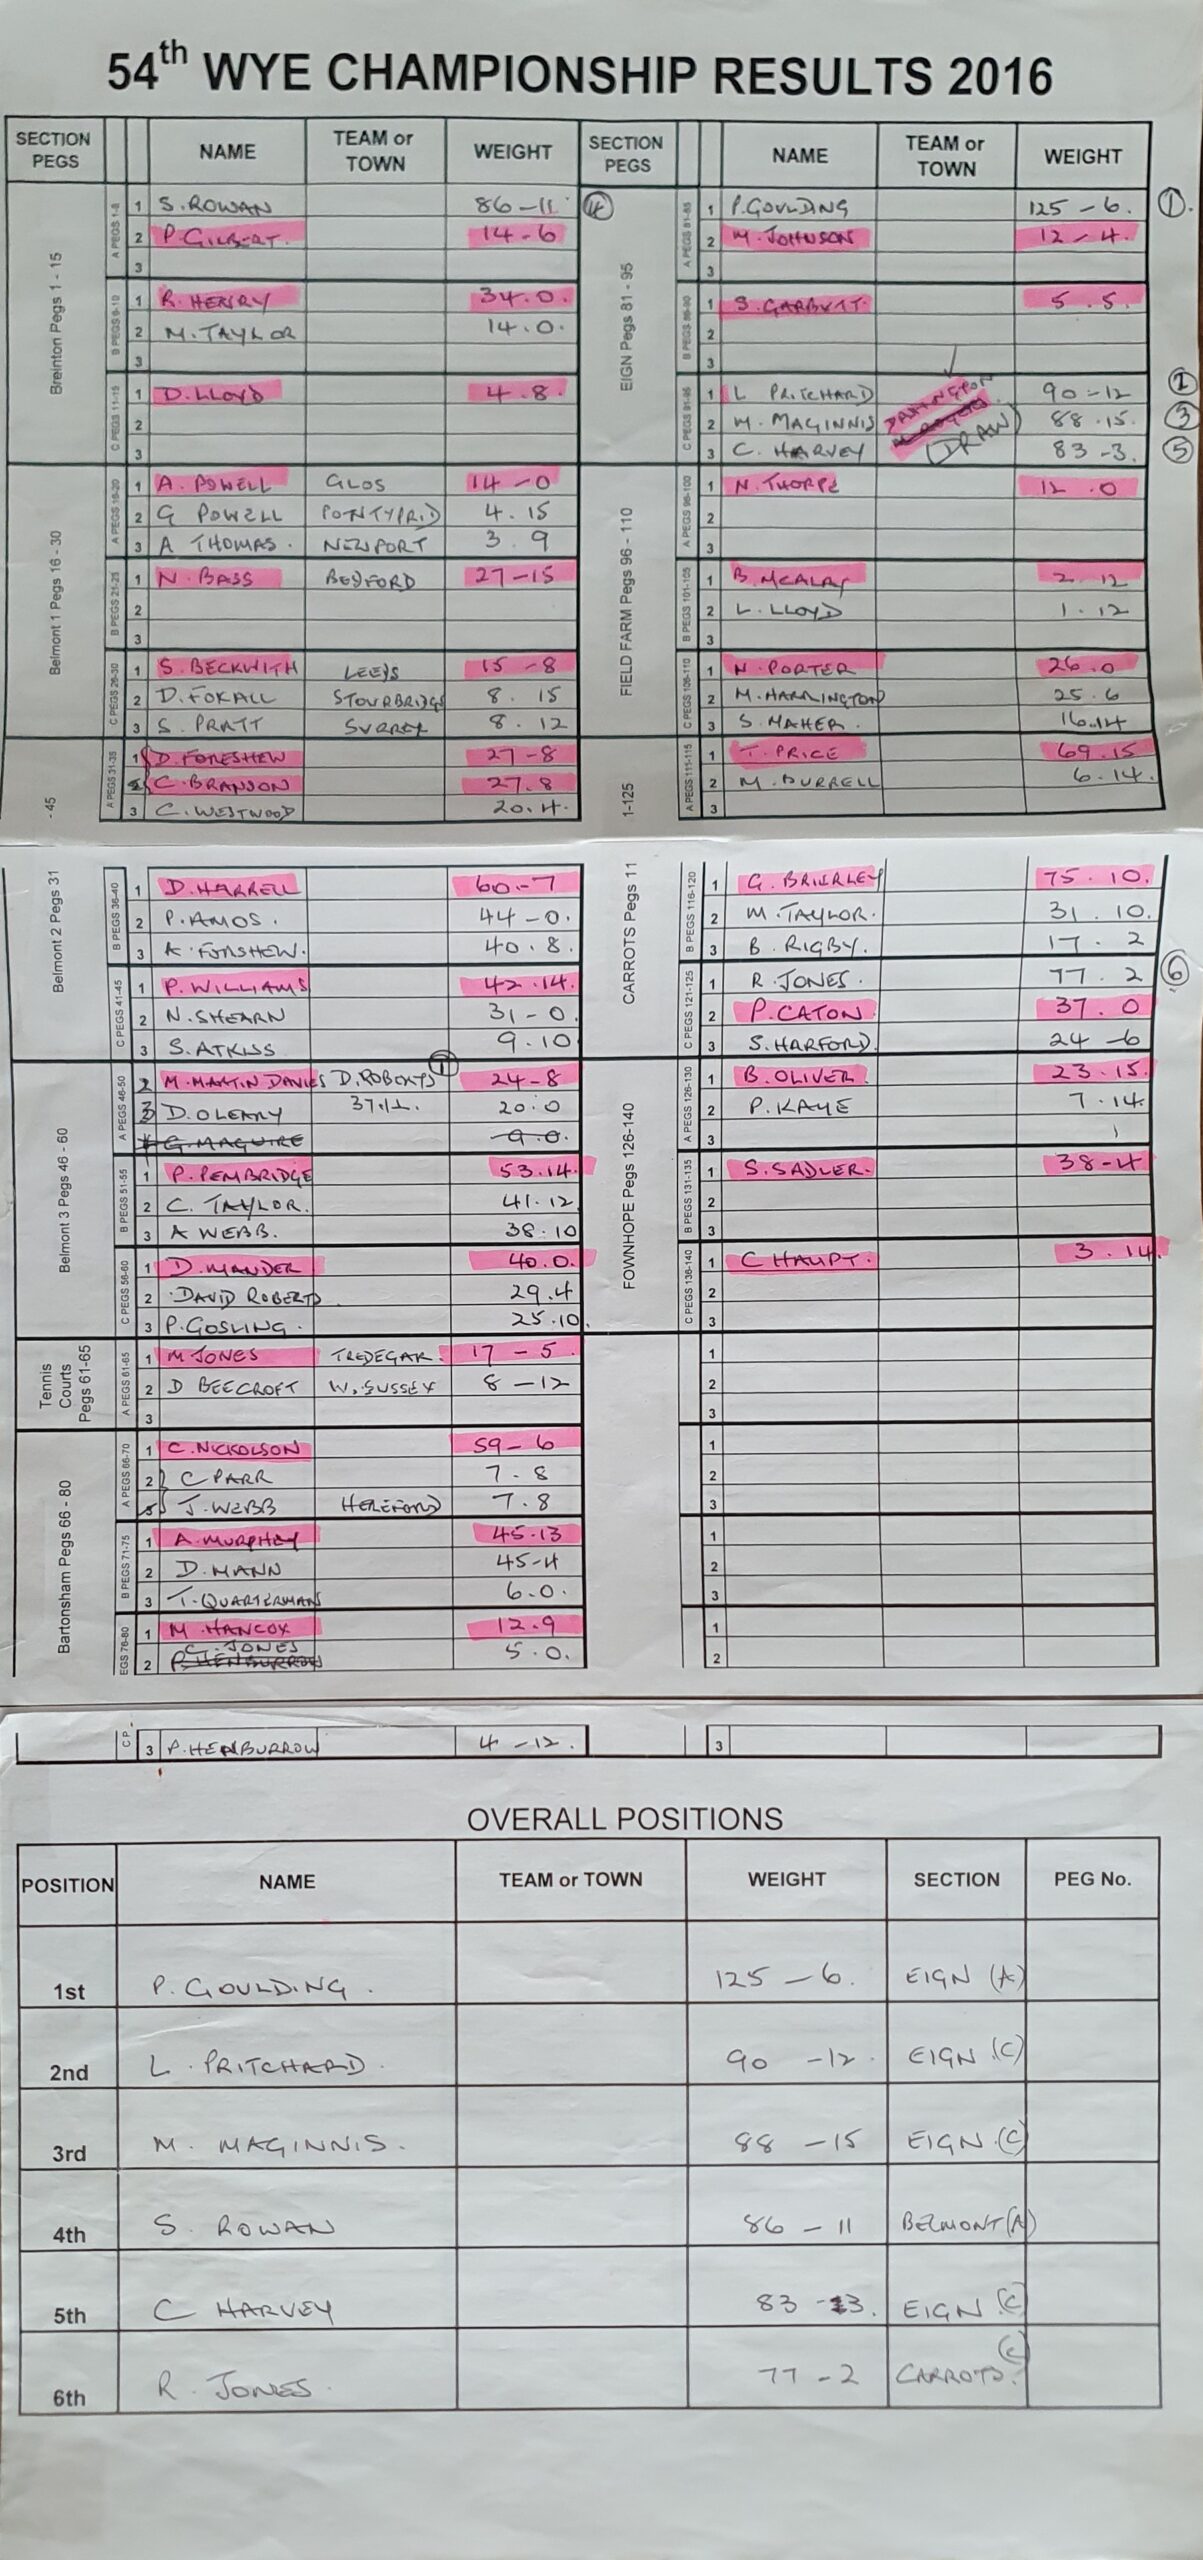 54th WYE CHAMPIONSHIP RESULTS 2016
SECTION PEGS NAME TEAM or TOWN WEIGHT
Breinton Pegs 1 - 15
A PEGS 1-5
1 S. ROWAN 86-11 4
2 P. GILBERT. 14-6
3
B PEGS 6-10
1 R. HENRY 34.0.
2 M. TAYLOR 14.0.
3
C PEGS 11-15
1 D. LLOYD 4.8.
2
3
Belmont 1 Pegs 16 - 30
A PEGS 16-20
1 A. POWELL GLOS 14-0
2 G POWELL PONTYPRID 4.15
3 A THOMAS. NEWPORT 3 9
B PEGS 21-25
1 N. BASS BEDFORD 27-15
2
3
C PEGS 26-30
1 S. BECKWITH LEEDS 15-8
2 D. FOXALL STOURBRIDGE 8. 15
3 S. PRATT SURREY 8. 12
Belmont 2 Pegs 31 - 45
A PEGS 31-35
1 D. FORESHEW 27-8
C. BRANSON 27.8
3 C. WESTWOOD 20.4.
B PEGS 36-40
1 D. HARRELL 60.-7
2 P. AMOS. 44-0.
3 A. FORSHEW. 40.8.
C PEGS 41-45
1 P. WILLIAMS 42.14.
2 N. SHEARN 31-0.
3 S. ATKISS 9.10
Belmont 3 Pegs 46 - 60
A PEGS 46-50
2 M. MARTIN DAVIES D. ROBERTS 1 24-8
3 D. OLEARY 20.0
G. MAGUIRE 9.0.
B PEGS 51-55
1 P. PEMBRIDGE 53.14.
2 C. TAYLOR. 41.12
3 A WEBB. 38.10
C PEGS 56-60
1 D. MANDER 40.0.
2 DAVID ROBERTS 29.4
3 P. GOSLING. 25.10.
Tennis Courts Pegs 61-65
A PEGS 61-65
1 M JONES TREDEGAR. 17-5
2 D BEECROFT W. SUSSEX 8-12
3
Bartonsham Pegs 66 - 80
A PEGS 66-70
1 C. NICKOLSON 59-6
2 C PARR 7.8
J. WEBB HEREFORD 7.8
B PEGS 71-75
1 A. MURPHEY 45.13
2 D. MANN 45-4
3 T. QUARTERMAN 6.0.
EGS 76-80
1 M. HANCOX 12.9
C. JONES
2 P. HENBURROW 5.0.
C P.
3 P. HENBURROW 4-12.
SECTION PEGS NAME TEAM or TOWN WEIGHT
EIGN Pegs 81 - 95
A PEGS 81-85
1 P. GOULDING 125-6. 1.
2 M. JOHNSON 12-4.
3
B PEGS 86-90
1 S. GARBUTT. 5.5.
2
3
C PEGS 91-95
1 L PRITCHARD 90-12 2
2 M. MAGINNIS 88.15. 3
3 C. HARVEY (DRAW) 83-3. 5
FIELD FARM Pegs 96 - 110
A PEGS 96-100
1 N. THORPE 12.0
2
3
B PEGS 101-105
1 B. MCALAY 2.12
2 L. LLOYD 1.12
3
C PEGS 106-110
1 N. PORTER 26.0
2 M. HARRINGTON 25.6
3 S. MAHER. 16.14
CARROTS Pegs 111-125
A PEGS 111-115
1 T. PRICE 69.15
2 M. BURRELL 6.14.
3
B PEGS 116-120
1 G. BRIERLEY 75.10.
2 M. TAYLOR. 31.10.
3 B. RIGBY. 17.2
C PEGS 121-125
1 R. JONES. 77.2 6
2 P. CATON 37.0
3 S. HARFORD 24-6
FOWNHOPE Pegs 126-140
A PEGS 126-130
1 B. OLIVER. 23.15.
2 P. KAYE 7.14.
3
B PEGS 131-135
1 S. SADLER. 38-4
2
3
C PEGS 136-140
1 C HAUPT. 3.14.
2
3
1
2
3
1
2
3
1
2
3
1
2
3
OVERALL POSITIONS
POSITION NAME TEAM or TOWN WEIGHT SECTION PEG No.
1st P. GOULDING. 125-6. EIGN (A)
2nd L. PRITCHARD. 90-12. EIGN.(C)
3rd M. MAGINNIS. 88-15 EIGN.(C)
4th S. ROWAN 86-11 BELMONT (A)
5th C HARVEY 83-3. EIGN.(C)
6th R. JONES. 77-2 CARROTS. (C)